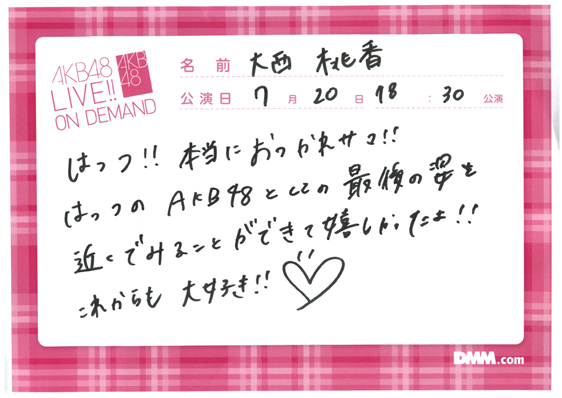 AKB48
LIVE!!
ON DEMAND
AKB
48
名前 大西 桃香
公演日 7月20日 18:30公演
はっつ!! 本当におつかれサマ!!
はっつの AKB48としての 最後の姿を
近くでみることができて嬉しかったよ!!
これからも 大好き!! ♡
DMM.com